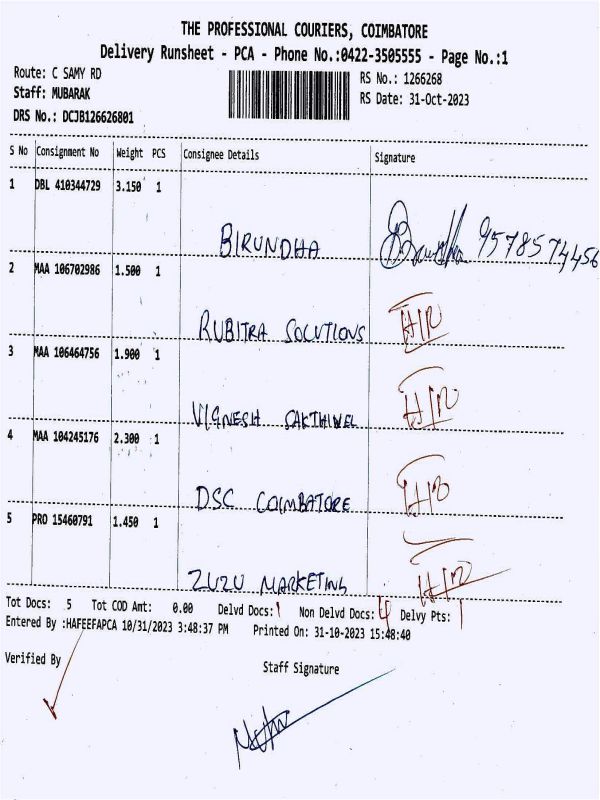 THE PROFESSIONAL COURIERS, COIMBATORE
Delivery Runsheet - PCA - Phone No.:0422-3505555 - Page No.:1
Route: C SAMY RD RS No.: 1266268
Staff: MUBARAK RS Date: 31-Oct-2023
DRS No.: DCJB126626801
S No Consignment No Weight PCS Consignee Details Signature
1 DBL 410344729 3.150 1
BIRUNDHA 9578574456
2 MAA 106702986 1.500 1
RUBITRA SOLUTIONS
3 MAA 106464756 1.900 1
VIGNESH SAKTHIVEL
4 MAA 104245176 2.300 1
DSC COIMBATORE
5 PRO 15460791 1.450 1
ZUZU MARKETING
Tot Docs: 5 Tot COD Amt: 0.00 Delvd Docs: 1 Non Delvd Docs: 4 Delvy Pts: 1
Entered By :HAFEEFAPCA 10/31/2023 3:48:37 PM Printed On: 31-10-2023 15:48:40
Verified By
Staff Signature